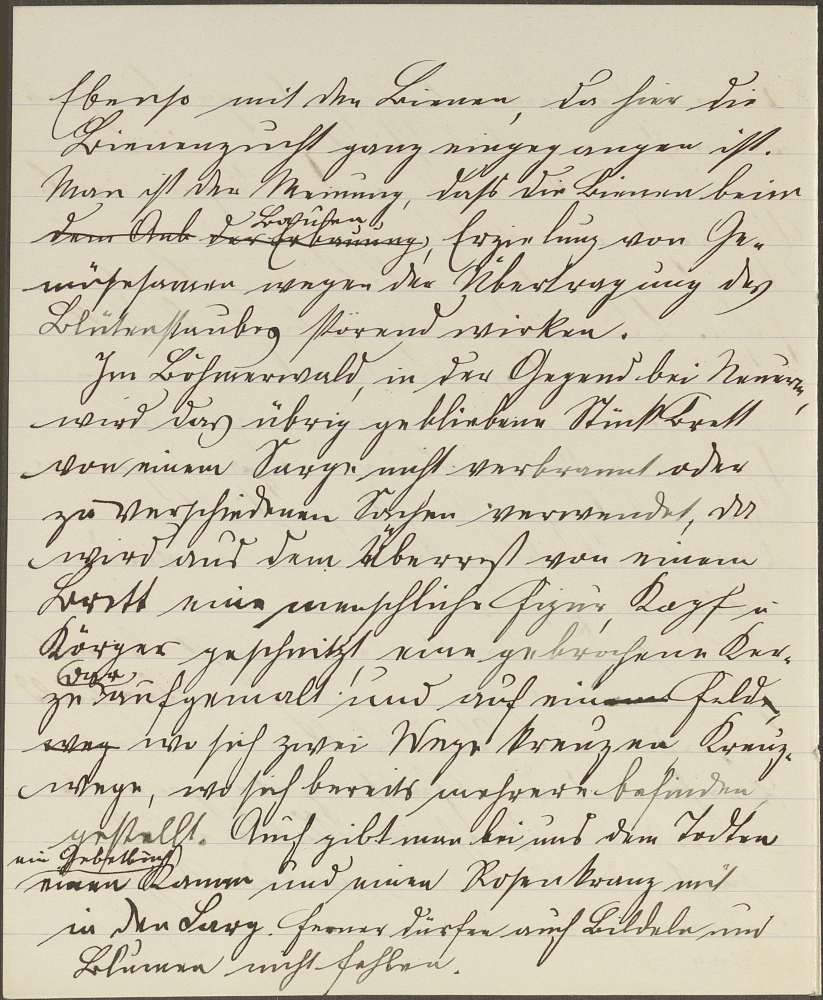 Ebenso mit den Bienen, da hier die
Bienenzucht ganz eingegangen ist.
Man ist der Meinung, dass die Bienen beim
dem Anb der Erbauung, Bauchen Erzielung von Ge-
müsesamen wegen der Übertragung des
Blütenstaubes störend wirken.
Im Böhmerwald, in der Gegend bei Neuern,
wird das übrig gebliebene Stück Brett
von einem Sarge nicht verbrannt oder
zu verschiedenen Sachen verwendet, da
wird aus dem Überrest von einem
Brett eine menschliche Figur, Kopf u
Körper geschnitzt, eine gebrochene Ker-
ze dar aufgemalt und auf einem Felde,
weg wo sich zwei Wege kreuzen, Kreuz-
wege, wo sich bereits mehrere befinden,
gestellt. Auch gibt man bei uns dem Todten
ein Gebetbuch
einen Kamm und einen Rosenkranz mit
in den Sarg. Ferner dürfen auch Bildeln und
Blumen nicht fehlen.